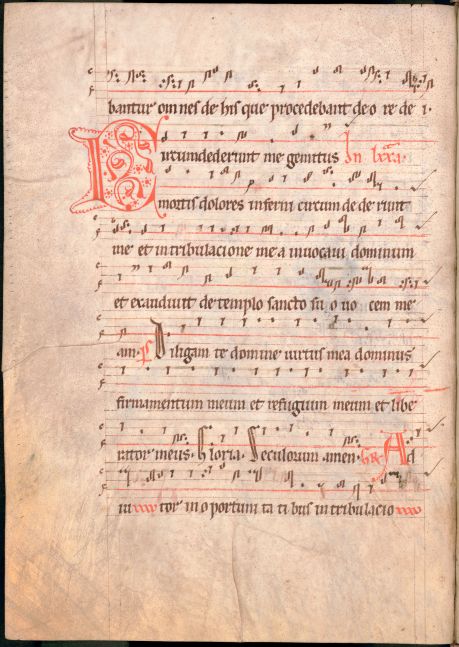 bantur omnes de his que procedebant de o re de i.
Circumdederunt me gemitus In lxxa.
mortis dolores inferni circum de de runt
me et in tribulacione me a invocavi dominum
et exaudivit de templo sancto su o vo cem me
am. P Diligam te domine virtus mea dominus
firmamentum meum et refugium meum et libe
rator meus. Gloria. Seculorum amen. GR Ad
iu tor in o portuni ta ti bus in tribulacio